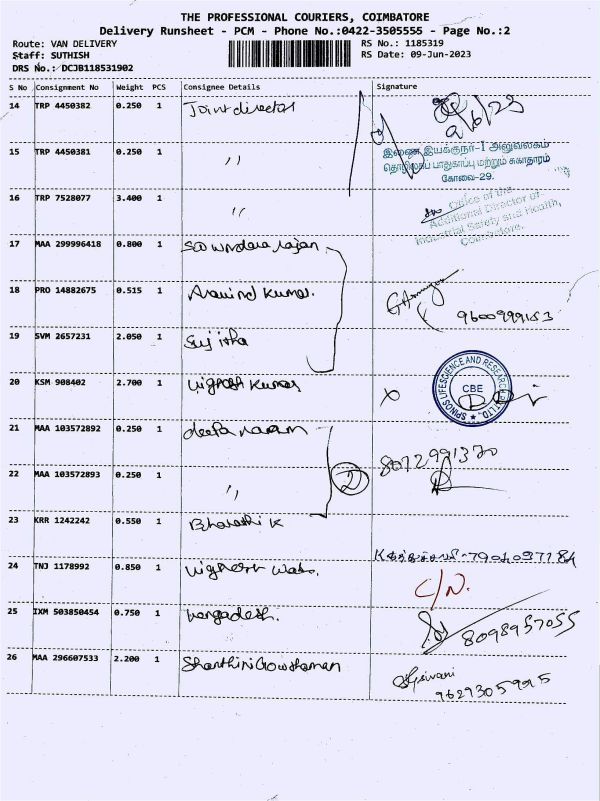 THE PROFESSIONAL COURIERS, COIMBATORE
Delivery Runsheet - PCM - Phone No.:0422-3505555 - Page No.:2
Route: VAN DELIVERY RS No.: 1185319
Staff: SUTHISH RS Date: 09-Jun-2023
DRS No.: DCJB118531902
S No Consignment No Weight PCS Consignee Details Signature
14 TRP 4450382 0.250 1 Joint director 9/6/23
15 TRP 4450381 0.250 1 "
இணை இயக்குநர்-I அலுவலகம்
தொழிலகப் பாதுகாப்பு மற்றும் சுகாதாரம்
கோவை-29.
16 TRP 7528077 3.400 1 "
Office of the
Additional Director of
Industrial Safety and Health,
Coimbatore.
17 MAA 299996418 0.800 1 Soundara rajan
18 PRO 14882675 0.515 1 Aravind Kumar. 9600999153
19 SVM 2657231 2.050 1 Sujitha
20 KSM 908402 2.700 1 Vignesh Kumar X
SPINOS LIFESCIENCE AND RESEARCH PVT LTD.
CBE
21 MAA 103572892 0.250 1 deepa naram 8072991370
22 MAA 103572893 0.250 1 " 2
23 KRR 1242242 0.550 1 Bharathi K 7904097184
24 TNJ 1178992 0.850 1 Vignesh C/N.
25 IXM 503850454 0.750 1 8098957055
26 MAA 296607533 2.200 1 Shanthini Gowthaman
9629305995